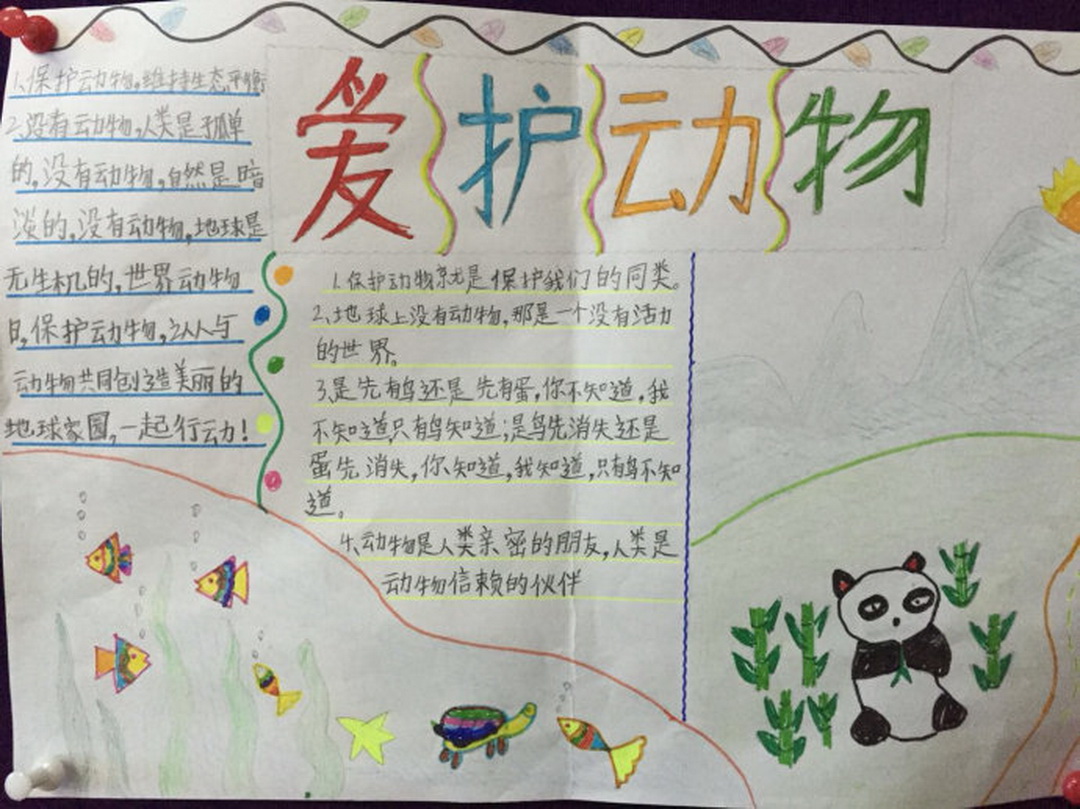 爱护动物
1、保护动物,维持生态平衡
2、没有动物,人类是孤单
的,没有动物,自然是暗
淡的,没有动物,地球是
无生机的,世界动物
日,保护动物,让人与
动物共同创造美丽的
地球家园,一起行动!
1、保护动物就是保护我们的同类。
2、地球上没有动物,那是一个没有活力
的世界。
3、是先有鸟还是先有蛋,你不知道,我
不知道只有鸟知道;是鸟先消失还是
蛋先消失,你知道,我知道,只有鸟不知
道。
4、动物是人类亲密的朋友,人类是
动物信赖的伙伴